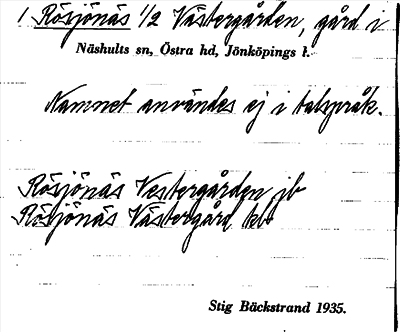 1 Rösjönäs 1/2 Västergården, gård i
Näshults sn, Östra hd, Jönköpings l.
Namnet användes ej i talspråk.
Rösjönäs Vestergården jb
Rösjönäs Västergård kb
Stig Bäckstrand 1935.